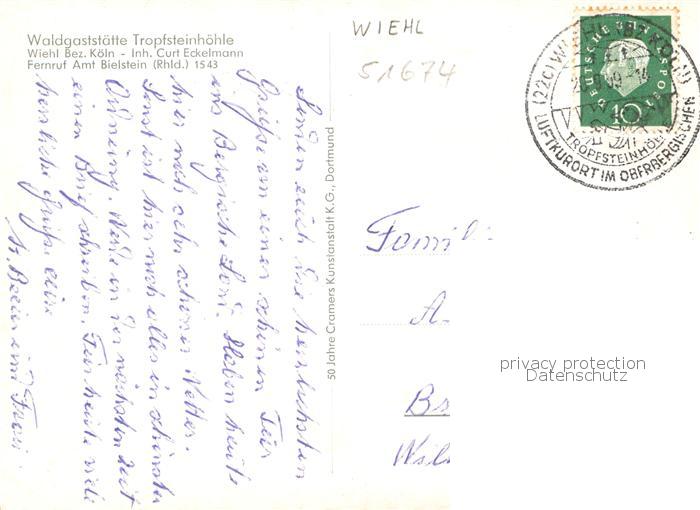 Waldgaststätte Tropfsteinhöhle
Wiehl Bez. Köln - Inh. Curt Eckelmann
Fernruf Amt Bielstein (Rhld.) 1543
WIEHL
51674
DEUTSCHE BUNDESPOST
10
(22c) WIEHL (BZ KÖLN)
TROPFSTEINHÖHLE
LUFTKURORT IM OBERBERGISCHEN
50 Jahre Cramers Kunstanstalt K.G., Dortmund
Senden euch die herzlichsten
Grüße von einer schönen Tur
ins Bergische Land. Haben heute
hier noch sehr schönes Wetter.
Sonst ist hier noch alles in schönster
Ordnung. Werde in der nächsten Zeit
einen Brief schreiben. Für heute viele
herzliche Grüße eure
und Frau
Famil
A
Bs
Wil
privacy protection
Datenschutz